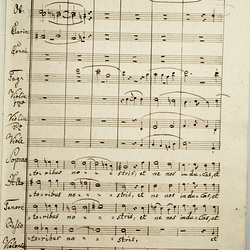 Ob:
Clarin
Corni
Fag:
Violin
Violin
Viole
Soprano
toribus no - - stris, et ne nos inducas, et
Alto
toribus no - - stris, et ne nos inducas, et
Tenore
toribus no - - stris, et ne nos inducas, et
Basso
toribus no - - stris, et
Violone